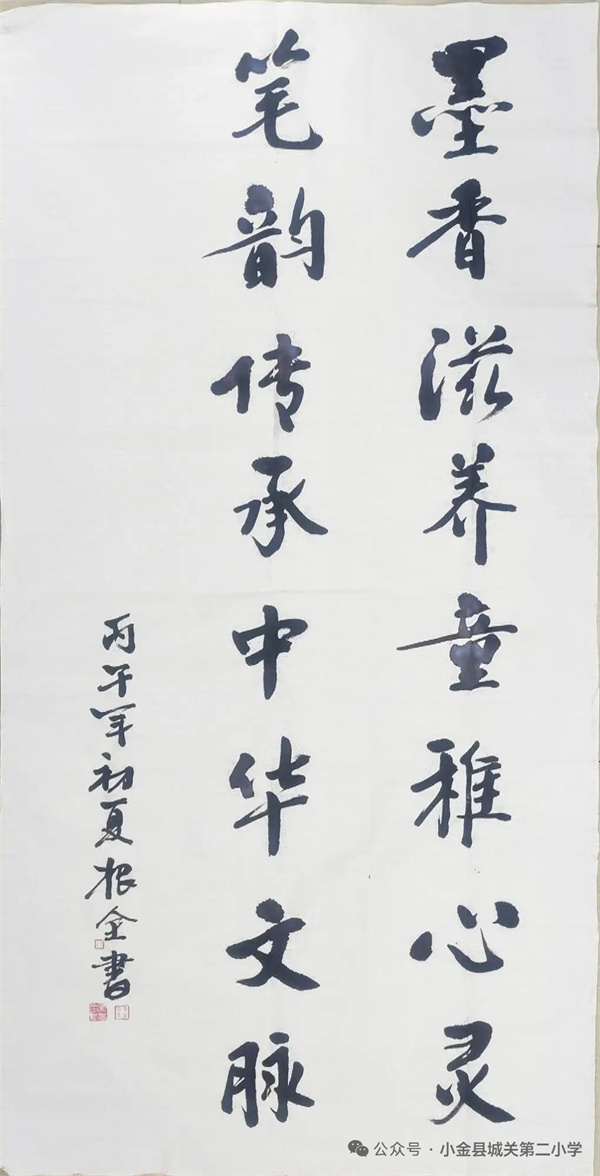 墨香滋养童雅心灵
笔韵传承中华文脉
丙午年初夏根全书
公众号·小金县城关第二小学